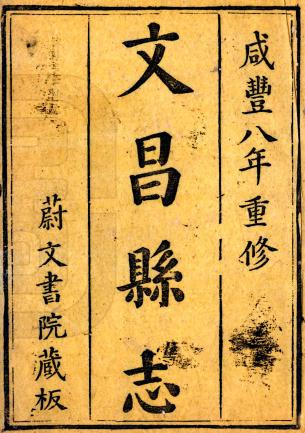 咸豐八年重修
文昌縣志
蔚文書院藏板